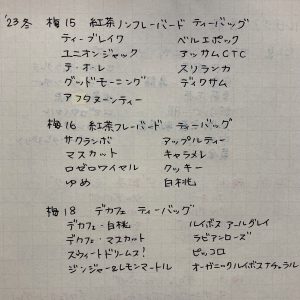 '23冬 梅15 紅茶ノンフレーバード ティーバッグ
ティーブレイク ベルエポック
ユニオンジャック アッサムCTC
テ・オ・レ スリランカ
グッドモーニング ディクサム
アフタヌーンティー
梅16 紅茶フレーバード ティーバッグ
サクランボ アップルティー
マスカット キャラメレ
ロゼロワイヤル クッキー
ゆめ 白桃
梅18 デカフェ ティーバッグ
デカフェ・白桃 ルイボス アールグレイ
デカフェ・マスカット ラビアンローズ
スウィートドリームス! ピッコロ
ジンジャー&レモンマートル オーガニックルイボスナチュラル